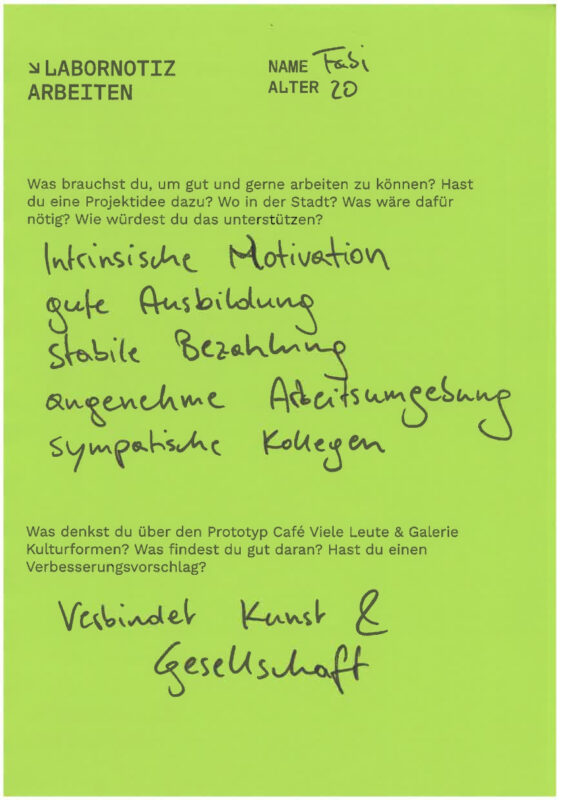 ↘ LABORNOTIZ
ARBEITEN
NAME Fabi
ALTER 20
Was brauchst du, um gut und gerne arbeiten zu können? Hast
du eine Projektidee dazu? Wo in der Stadt? Was wäre dafür
nötig? Wie würdest du das unterstützen?
Intrinsische Motivation
gute Ausbildung
stabile Bezahlung
angenehme Arbeitsumgebung
sympatische Kollegen
Was denkst du über den Prototyp Café Viele Leute & Galerie
Kulturformen? Was findest du gut daran? Hast du einen
Verbesserungsvorschlag?
Verbindet Kunst &
Gesellschaft